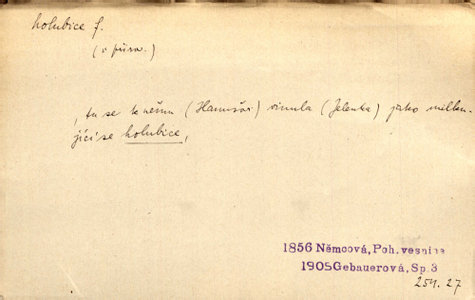 holubice f.
(v přirov.)
, tu se k němu (Hamšas) vinula (Jelenka) jako milku-
jící se holubice,
1856 Němcová, Poh. vesnice
1905 Gebauerová, Sp. 3
254. 27